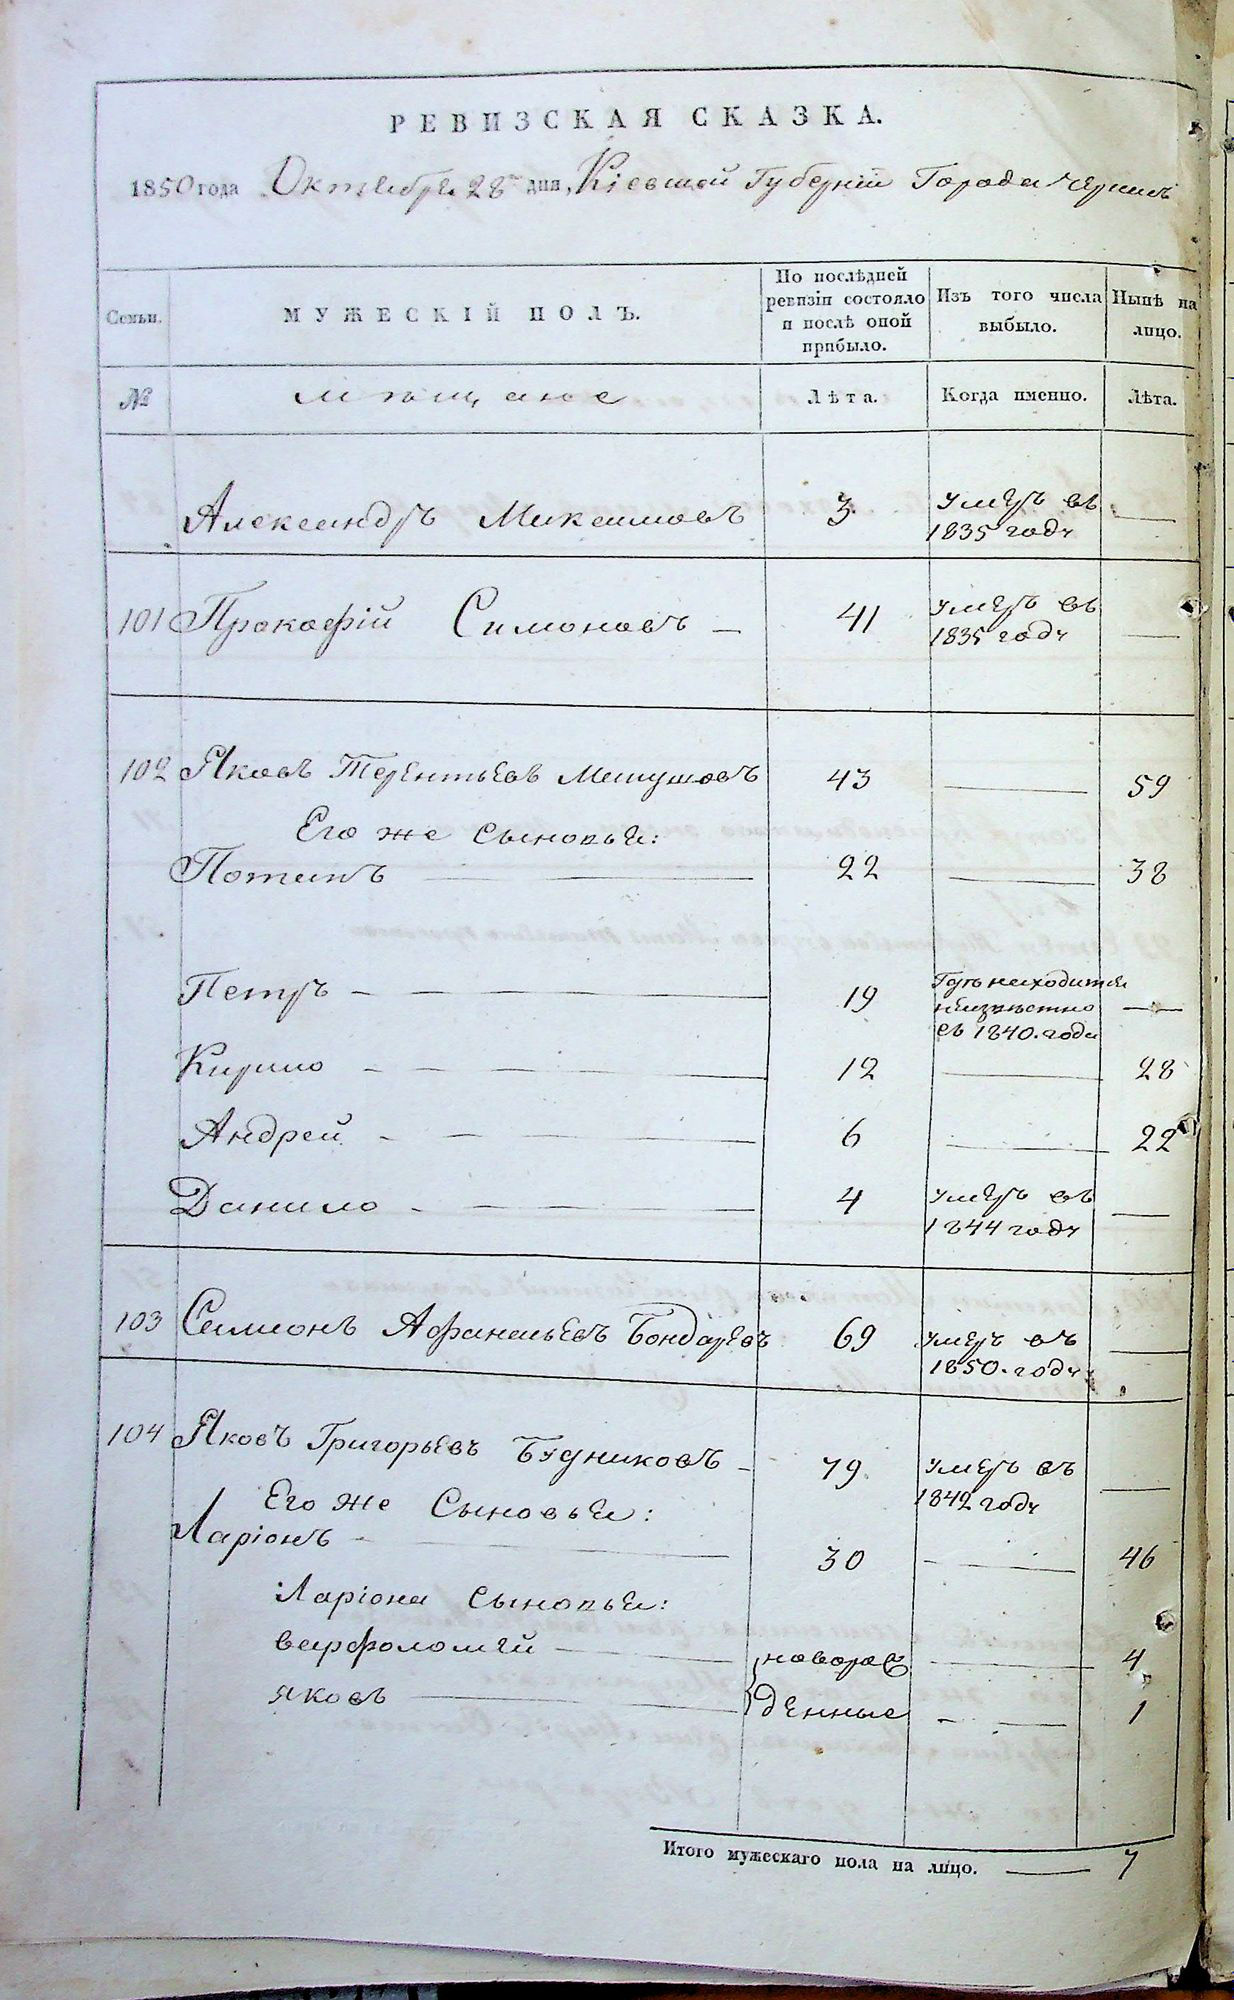 РЕВИЗСКАЯ СКАЗКА.
1850 года Октября 28 дня, Кіевской Губерніи Города
Семьи.
МУЖЕСКІЙ ПОЛЪ.
По послѣдней
ревизіи состояло
и послѣ оной
прибыло.
Изъ того числа
выбыло.
Нынѣ на
лицо.
№
мѣщане
Лѣта.
Когда именно.
Лѣта.
Александръ Максимовъ 3 умеръ въ
1835 году
101 Прокофій Симоновъ — 41 умеръ въ
1835 году
102 Яковъ Терентьевъ 43 — 59
Его же сыновья:
Потапъ — 22 — 38
Петръ — 19 находится
неизвѣстно
съ 1840. года —
Кирило — 12 — 28
Андрей — 6 — 22
Данило — 4 умеръ въ
1844 году —
103 Симионъ Афанасьевъ Бондаревъ 69 умеръ въ
1850. году —
104 Яковъ Григорьевъ Будниковъ — 79 умеръ въ
1842 году —
Его же Сыновья:
Ларіонъ — 30 — 46
Ларіона сыновья:
варфоломей — новорож — 4
яковъ — денные — 1
Итого мужескаго пола на лицо. — 7